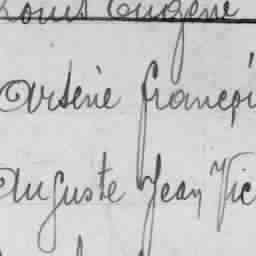 Louis Eugène
Arsène Françoi
Auguste Jean Vic